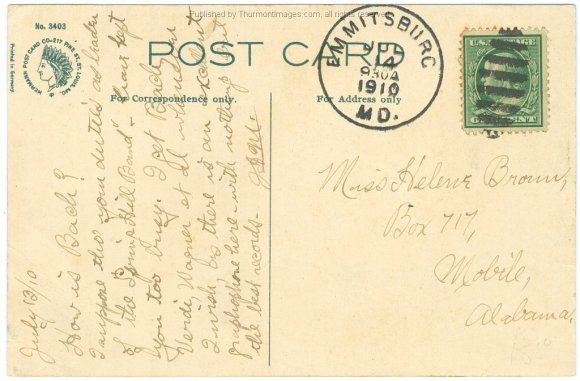 Published by Thurmontimages.com, all rights reserved
No. 3403
HERMANN POST CARD CO-217 PINE ST. ST. LOUIS, MO.
Printed in Germany
POST CARD
For Correspondence only.
For Address only
EMMITSBURG
JUL
14
930A
1910
MD.
U.S. POSTAGE
July 13/10
How is Bach?
I suppose tho your duties as leader
of the Spring Hill Band - have kept
you too busy. I get Bach
Verdi, Wagner et al whenever
I wish, as there is an
graphophone here - with nothing but
the best records -
Miss Helene Brown,
Box 717,
Mobile,
Alabama.